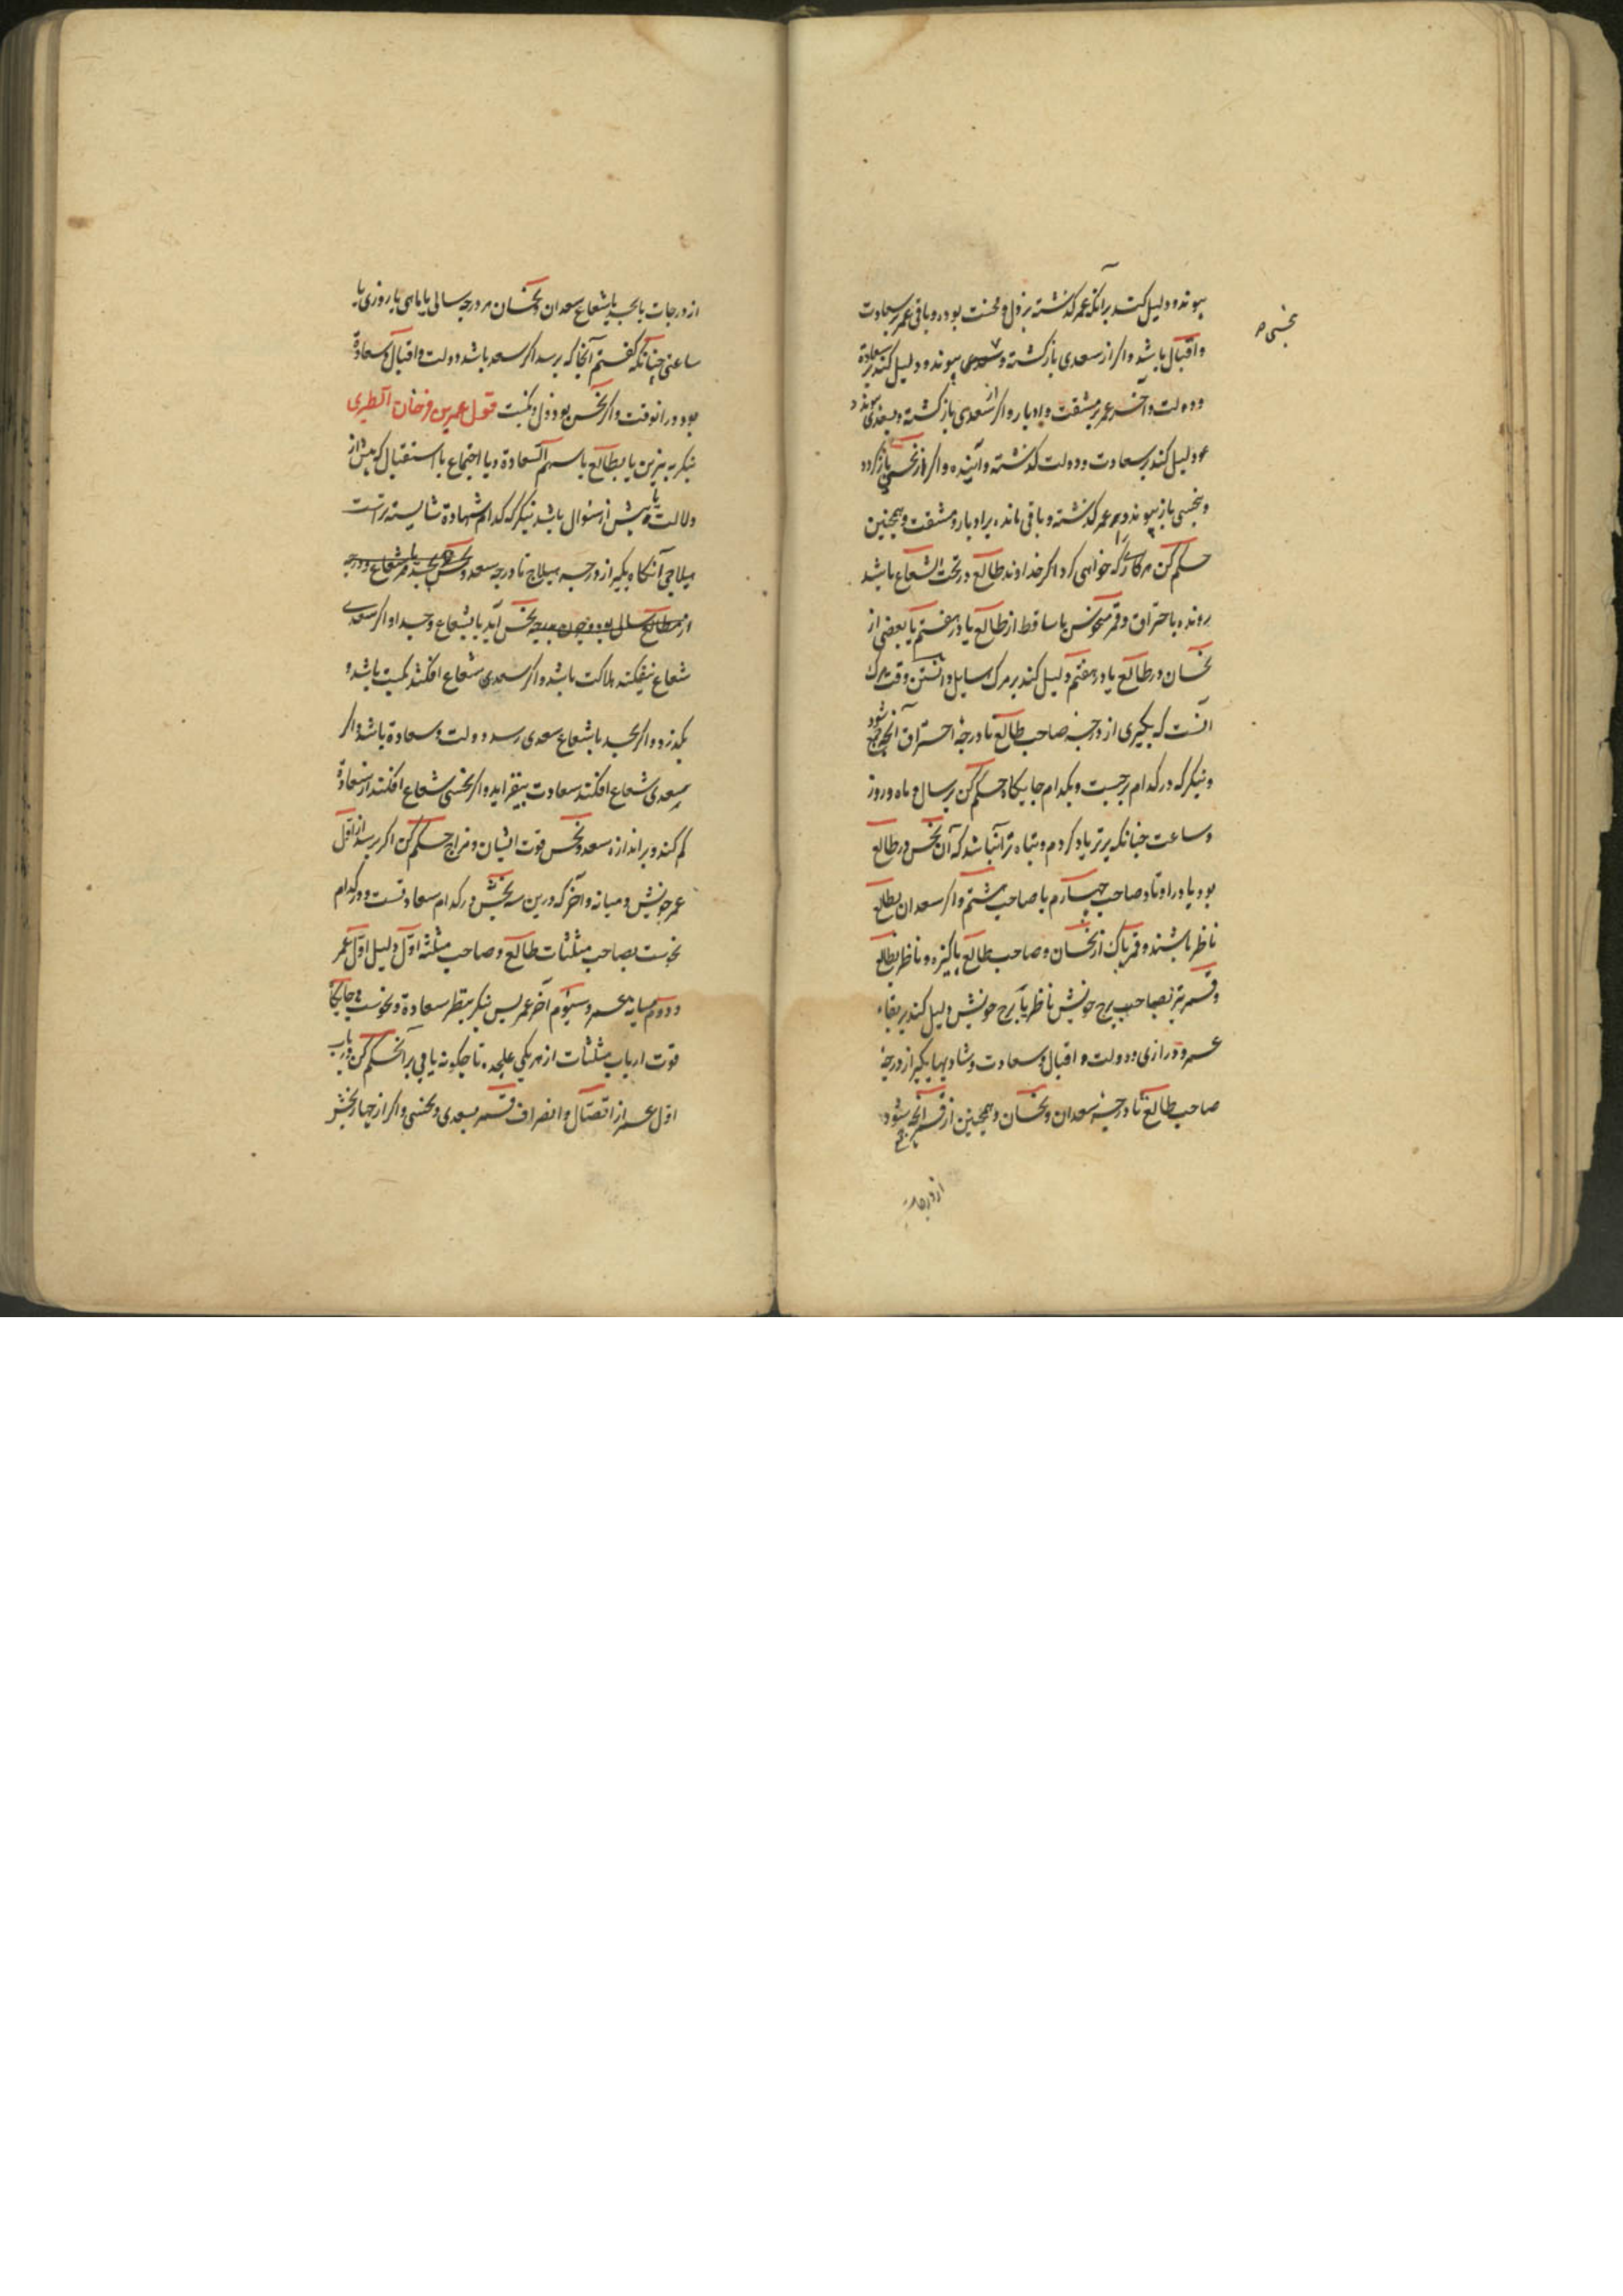 پیوندد دلیل کند برآنکه عمر گذشته بر ذل و محنت بوده و باقی عمر بر سعادت
بنحسی
و اقبال باشد و اگر از سعدی بازگشته و پیوندد دلیل کند بر سعادة
و دولت و آخر عمر بر مشقت و ادبار و اگر از سعدی بازگشته و بسعدی پیوندد
دلیل کند بر سعادت و دولت گذشته و آینده و اگر از نحسی بازگردد
و بنحسی باز پیوندد عمر گذشته و باقی مانده بر ادبار و مشقت و همچنین
حکم کن هر کاری که خواهی کرد اگر خداوند طالع در تحت الشعاع باشد
رونده باحتراق و قمر منحوس یا ساقط از طالع یا در هفتم یا بعضی از
نحسان در طالع یا در هفتم دلیل کند بر مرگ سایل و دانستن وقت مرگ
آنست که بگیری از درجهٔ صاحب طالع تا درجهٔ احتراق آنچه جمع شود
و بنگر که در کدام برجست و بکدام جایگاه حکم کن بر سال و ماه و روز
و ساعت چنانکه برتر یاد کردم و تباه تر آن باشد که آن نحس در طالع
بود یا در اوتاد و صاحب چهارم یا صاحب هشتم و اگر سعدان بطالع
ناظر باشند و قمر پاک از نحسان و صاحب طالع پاکیزه و ناظر بطالع
و قمر نیز بصاحب برج خویش ناظر یا برج خویش دلیل کند بر بقاء
عمر و درازی و دولت و اقبال و سعادت و شادیها بگیر از درجهٔ
صاحب طالع تا درجهٔ سعدان و نحسان و همچنین از قمر آنچه جمع شود
از درجات
از درجات یا بجسد یا شعاع سعدان و نحسان هر درجه سالی یا ماهی یا روزی یا
ساعتی چنانکه گفتم آنجا که برسد اگر سعد باشد دولت و اقبال و سعادة
بود در آنوقت و اگر نحس بود ذل و نکبت قول عمر بن فرخان الطبری
بنگر بنیرین یا بطالع یا سهم السعادة و یا اجتماع یا استقبال که پیش از
ولادت یا پیش از سئوال باشد بنگر که کدام شهادة شایسته تر است
هیلاجی آنگاه بگیر از درجهٔ هیلاج تا درجه سعد و نحس بجسد یا شعاع هر درجه
از مطالع سال بود و چون بدرجه نحس آید یا بشعاع و جسد او اگر سعدی
شعاع نیفکند هلاکت باشد و اگر سعدی شعاع افکند نکبت باشد و
بگذرد و اگر بجسد یا شعاع سعدی رسد دولت و سعادة باشد و اگر
سعدی شعاع افکند سعادت بیفزاید و اگر نحسی شعاع افکند از سعادة
کم کند و بر اندازه سعد و نحس قوت ایشان و مزاج حکم کن اگر پرسد از اول
عمر خویش و میانه و آخر که درین سه بخش در کدام سعادتست و در کدام
نحوست بصاحب مثلثات طالع و صاحب مثلثه اول دلیل اول عمر
و دوم میانه عمر و سیوم آخر عمر پس بنگر بنظر سعادة و نحوست و جایگاه
قوت ارباب مثلثات از هر یکی علیحده تا چگونه یابی بر آن حکم کن در باب
اول عمر از اتصال و انصراف قمر بسعدی و نحسی و اگر از چهار بخش